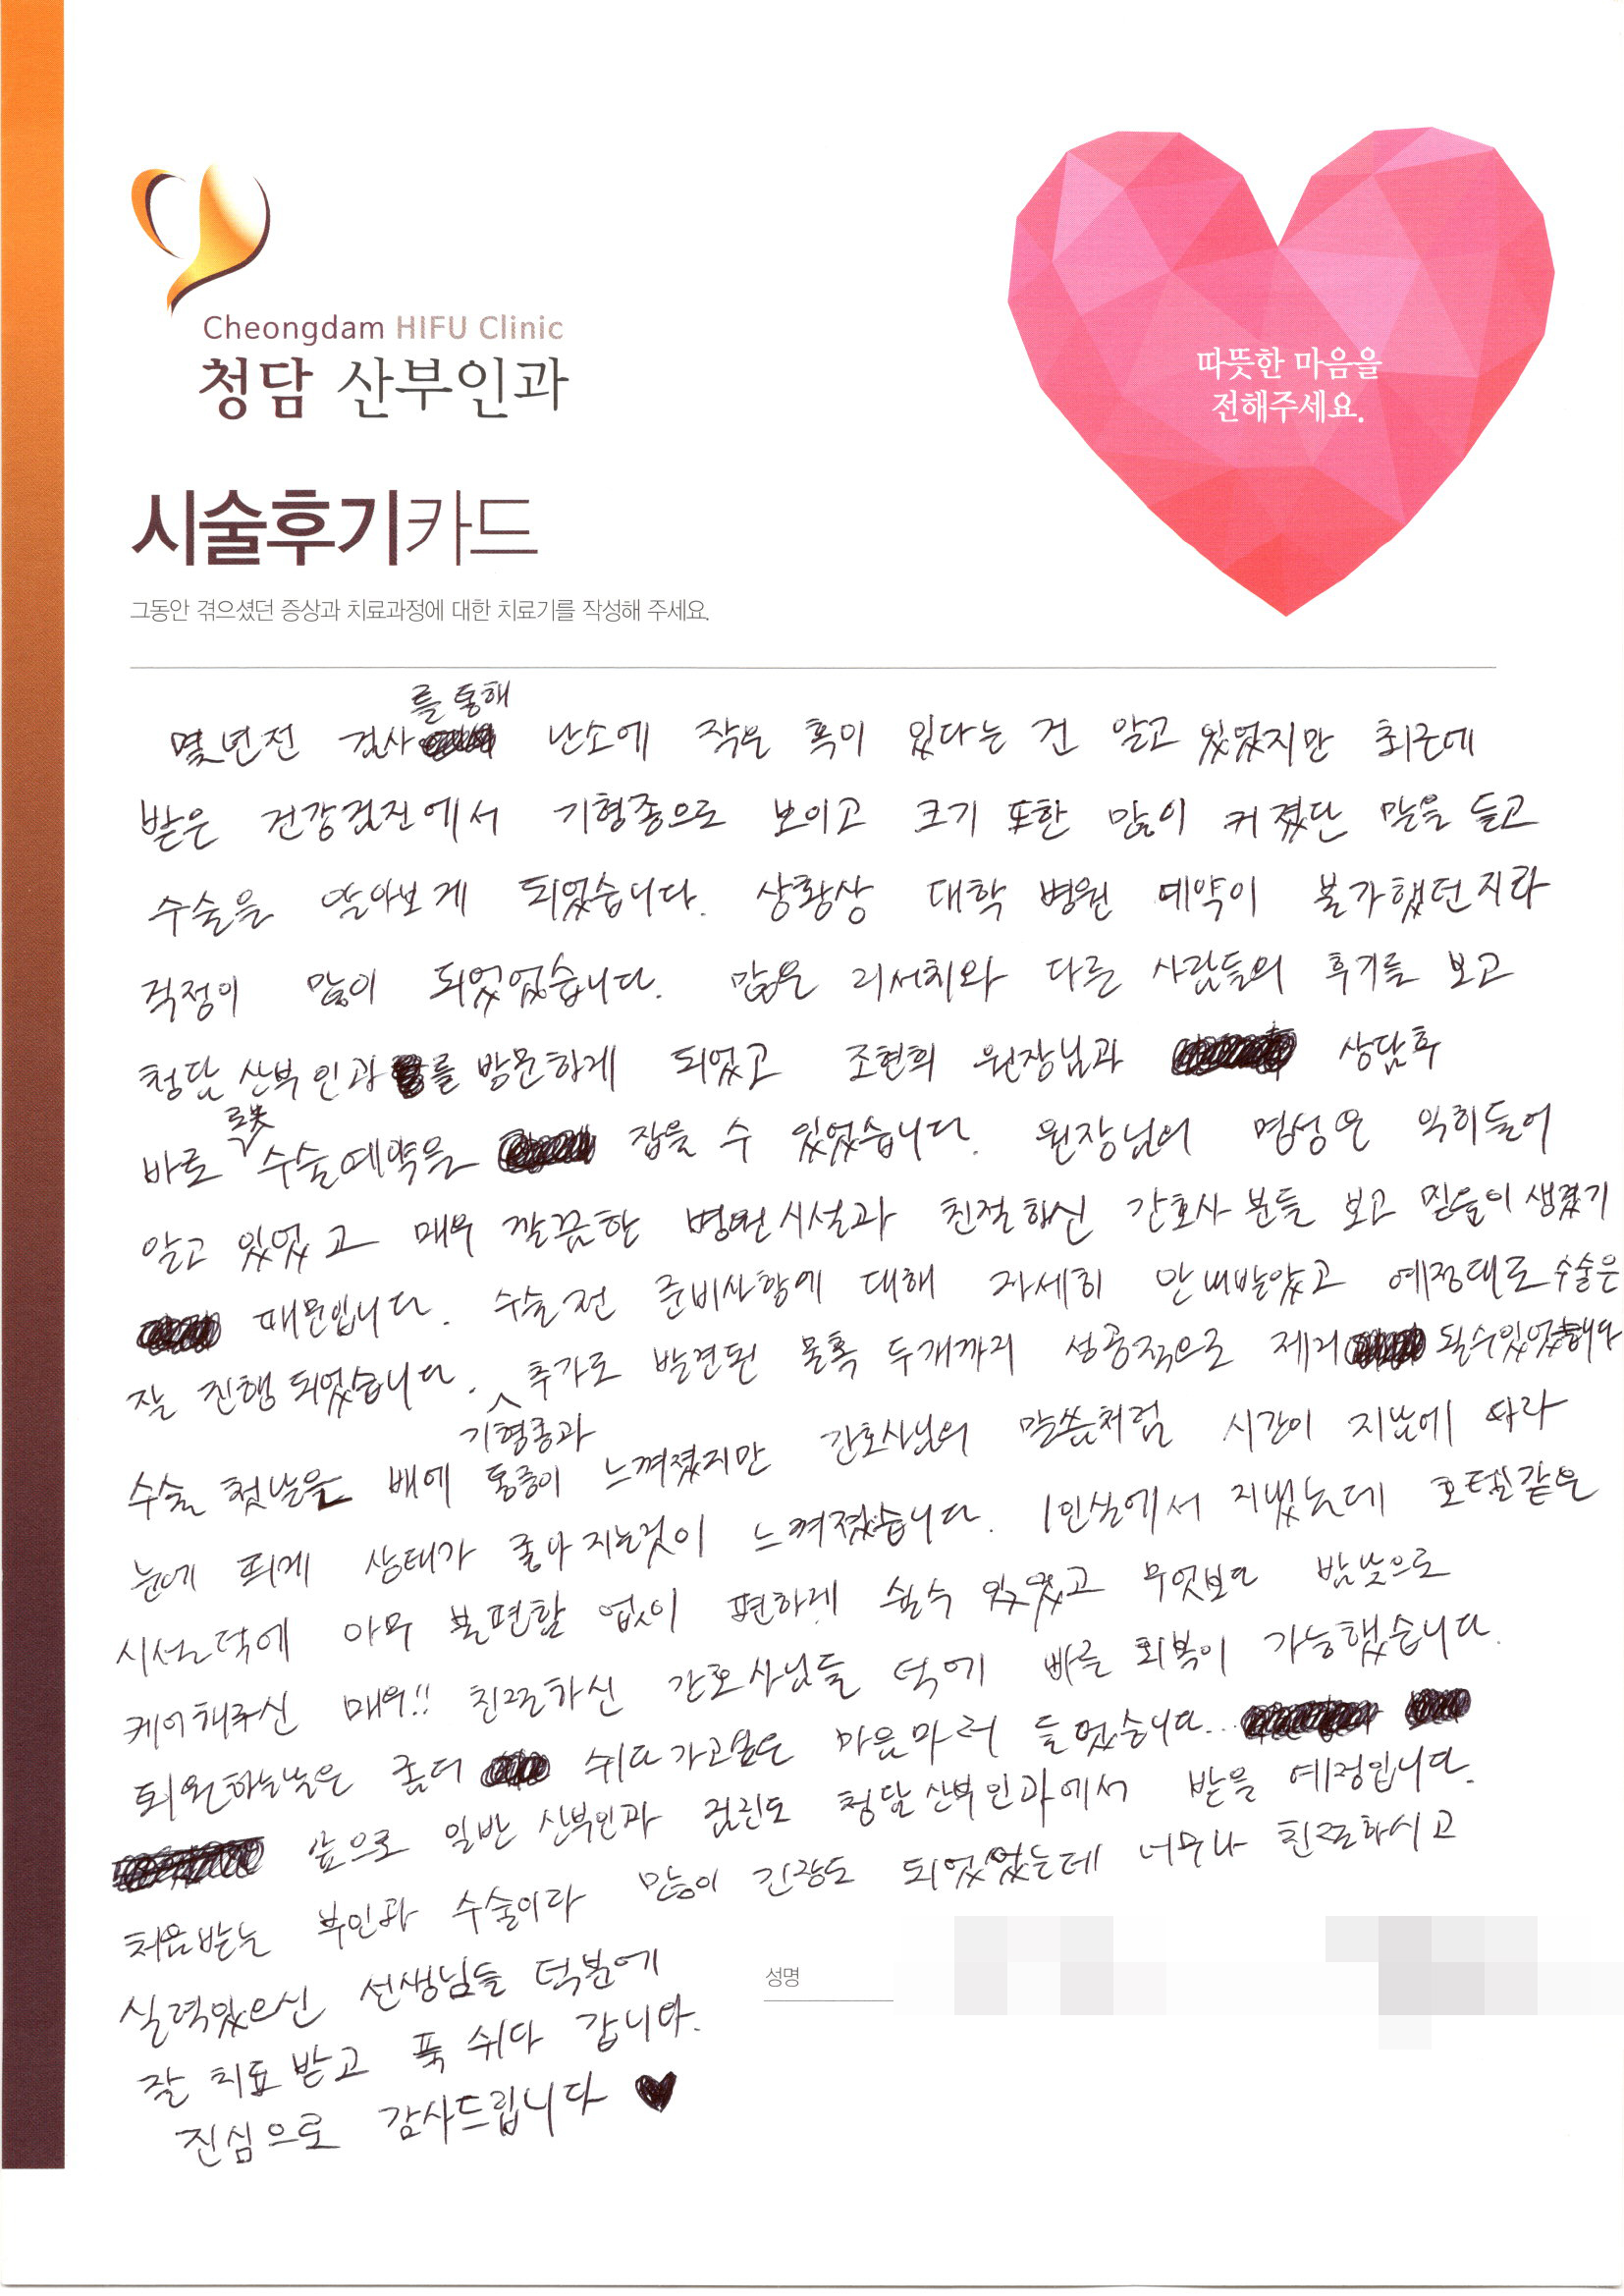 Cheongdam HIFU Clinic
청담 산부인과
따뜻한 마음을
전해주세요.
시술후기카드
그동안 겪으셨던 증상과 치료과정에 대한 치료기를 작성해 주세요.
몇년전 검사를 통해 난소에 작은 혹이 있다는 건 알고 있었지만 최근에
받은 건강검진에서 기형종으로 보이고 크기 또한 많이 커졌단 말을 듣고
수술을 알아보게 되었습니다. 상황상 대학 병원 예약이 불가했던지라
걱정이 많이 되었었습니다. 많은 리서치와 다른 사람들의 후기를 보고
청담 산부인과를 방문하게 되었고 조현희 원장님과 상담후
바로 로봇 수술예약을 잡을 수 있었습니다. 원장님의 명성은 익히들어
알고 있었고 매우 깔끔한 병원시설과 친절하신 간호사 분들 보고 믿음이 생겼기
때문입니다. 수술전 준비사항에 대해 자세히 안내받았고 예정대로 수술은
잘 진행되었습니다. 기형종과 추가로 발견된 물혹 두개까지 성공적으로 제거 될수있었습니다
수술 첫날은 배에 통증이 느껴졌지만 간호사님의 말씀처럼 시간이 지남에 따라
눈에 띄게 상태가 좋아지는것이 느껴졌습니다. 1인실에서 지냈는데 호텔같은
시설덕에 아무 불편함 없이 편하게 쉴수 있었고 무엇보다 밤낮으로
케어해주신 매우!! 친절하신 간호사님들 덕에 빠른 회복이 가능했습니다.
퇴원하는날은 좀더 쉬다가고싶은 마음마저 들었습니다...
앞으로 일반 산부인과 검진도 청담산부인과에서 받을 예정입니다.
처음받는 부인과 수술이라 많이 긴장도 되었었는데 너무나 친절하시고
실력있으신 선생님들 덕분에
잘 치료받고 푹 쉬다 갑니다.
진심으로 감사드립니다 ♥
성명